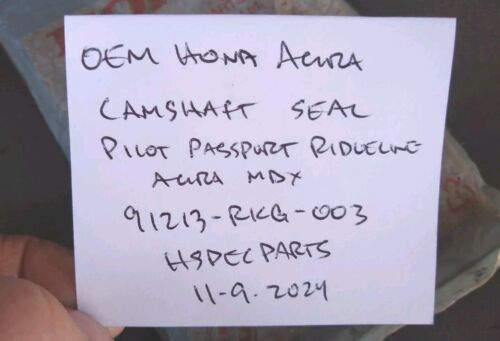 OEM HONA ACURA
CAMSHAFT SEAL
PILOT PASSPORT RIDGELINE
ACURA MDX
91213-RKG-003
HSPECPARTS
11-9.2024